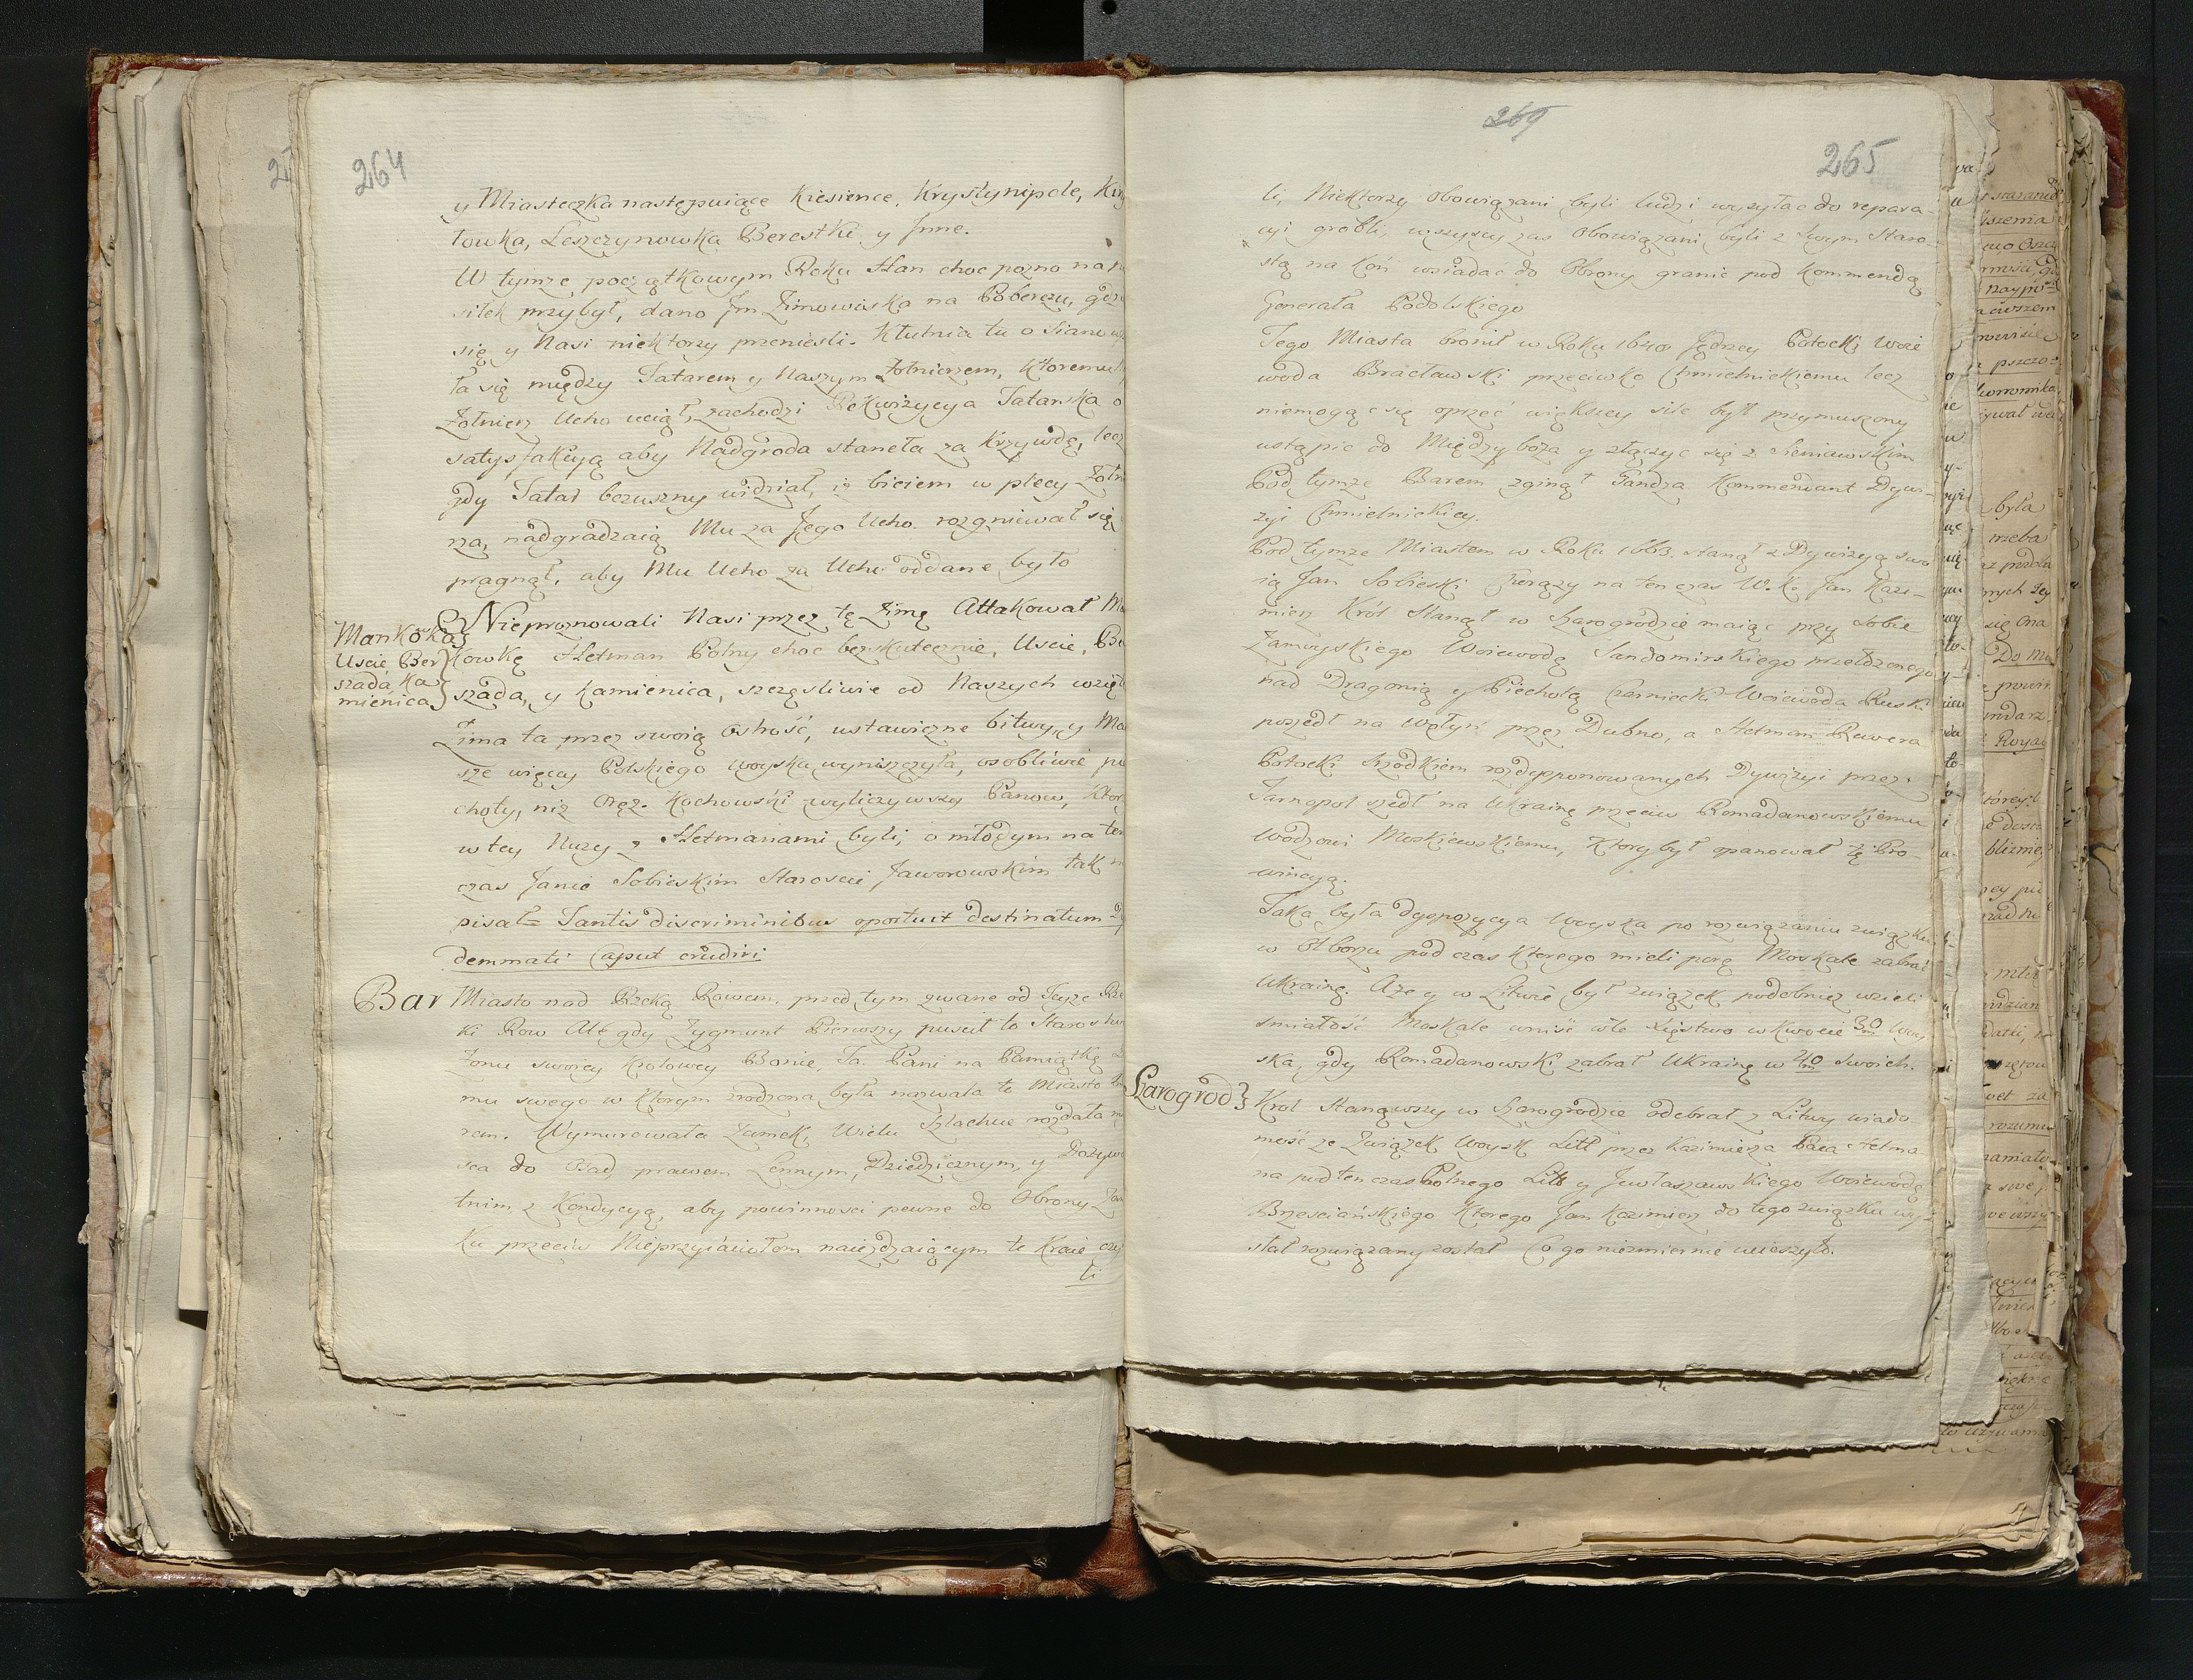 264
y Miasteczka następuiące Kiesience, Krystynipole, Kry
łowka, Leszczynowka Berestki y Jnne.
W tymże początkowym Roku Han choc pozno na p
siłek przybył, dano Jm Zimowiska na Pobereżu, gdz
się y Nasi niektorzy przenieśli. Kłutnia tu o Siano w
ła się między Tatarem y Naszym Żołnierzem, Ktoremu
Żołnierz Ucho uciął, zachodzi Rekwizycya Tatarska o
satysfakcyą aby Nadgroda staneła za Krzywdę, lecz
gdy Tatar bezuszny widział, iż biciem w plecy Żołn
rza, nadgradzaią Mu za Jego Ucho rozgniewał się
pragnął, aby Mu Ucho za Ucho oddane było
Nieproznowali Nasi przez tę Zimę Attakował Ma
Mankowka
Uscie Ber
szada Ka
mienica
kowkę Hetman Polny choc bezskutecznie, Uscie, Be
szada, y Kamienica, szczęsliwie od Naszych wzięt
Zima ta przez swoią Ostrość, ustawiczne bitwy, y Ma
sze więcey Polskiego woyska wyniszczyła, osobliwie pie
choty, niż Oręż. Kochowski wyliczywszy Panow, Ktorz
w tey Nuży z Hetmanami byli, o młodym na ten
czas Janie Sobieskim Staroscie Jaworowskim tak n
pisał= Tantis discriminibus oportuit destinatum Dy
demmati Caput erudiri
Bar
Miasto nad Rzeką Rowem, przed tym zwane od Teyże Rze
ki Row Ale gdy Zygmunt Pierwszy puscił to Starostwo
Żonie swoiey Krolowey Bonie, Ta Pani na Pamiątkę
mu swego w ktorym zrodzona była nazwała to Miasto Ba
rem. Wymurowała Zamek, Wielu Szlachcie rozdała
sca do Osad, prawem Lennym, Dziedzicznym, y Dożywo
tnim, z Kondycyą, aby powinnosci pewne do Obrony Zam
ku przeciw Nieprzyiaciołom naieżdzaiącym te Kraie czy
li
269
265
li, Niektorzy Obowiązani byli ludzi wysyłac do repara-
cyi grobli, wszyscy zas Obowiązani byli z Swym Staro-
stą na Koń wsiadać do Obrony granic pod Kommendą
Generała Podolskiego
Tego Miasta bronił w Roku 1648 Jędrzey Potocki Woie
woda Bracławski przeciwko Chmielnickiemu lecz
niemogąc się oprzeć większey sile był przymuszony
ustąpic do Międzyboża y złączyc się z Sieniawskim
Pod tymże Barem zginął Gandza Kommendant Dywi-
zyi Chmielnickiey.
Pod tymże Miastem w Roku 1663. stanął z Dywizyą swo
ią Jan Sobieski Chorąży na ten czas W. K. Jan Kazi-
mierz Król Stanął w Szarogrodzie maiąc przy Sobie
Zamoyskiego Woiewodę Sandomirskiego przełożonego
nad Dragonią y Piechotą Czarniecki Woiewoda Ruski
poszedł na wołyń przez Dubno, a Hetman Rewera
Potocki Srzodkiem rozdysponowanych Dywizyi przez
Tarnopol szedł na Ukrainę przeciw Romadanowskiemu
Wodzowi Moskiewskiemu, Ktory był opanował tę Pro-
wincyą.
Taka była dyspozycya Woyska po rozwiązaniu związku
w Olborzu pod czas Ktorego mieli porę Moskale zabrać
Ukrainę. A że y w Litwie był związek podobnież wzieli
smiałość Moskale wniść w te Xięstwo w Kwocie 30/m Woy
ska, gdy Romadanowski zabrał Ukrainę w 40/m swoich.
Szarogrod
Krol Stanąwszy w Szarogrodzie odebrał z Litwy wiado
mość że Związek Woysk Litt przez Kazimierza Paca Hetma
na pod ten czas Polnego Litt y Jewłaszewskiego Woiewodę
Brzescianskiego Ktorego Jan Kazimierz do tego związku wy-
słał rozwiązany został Co go niezmiernie ucieszyło.